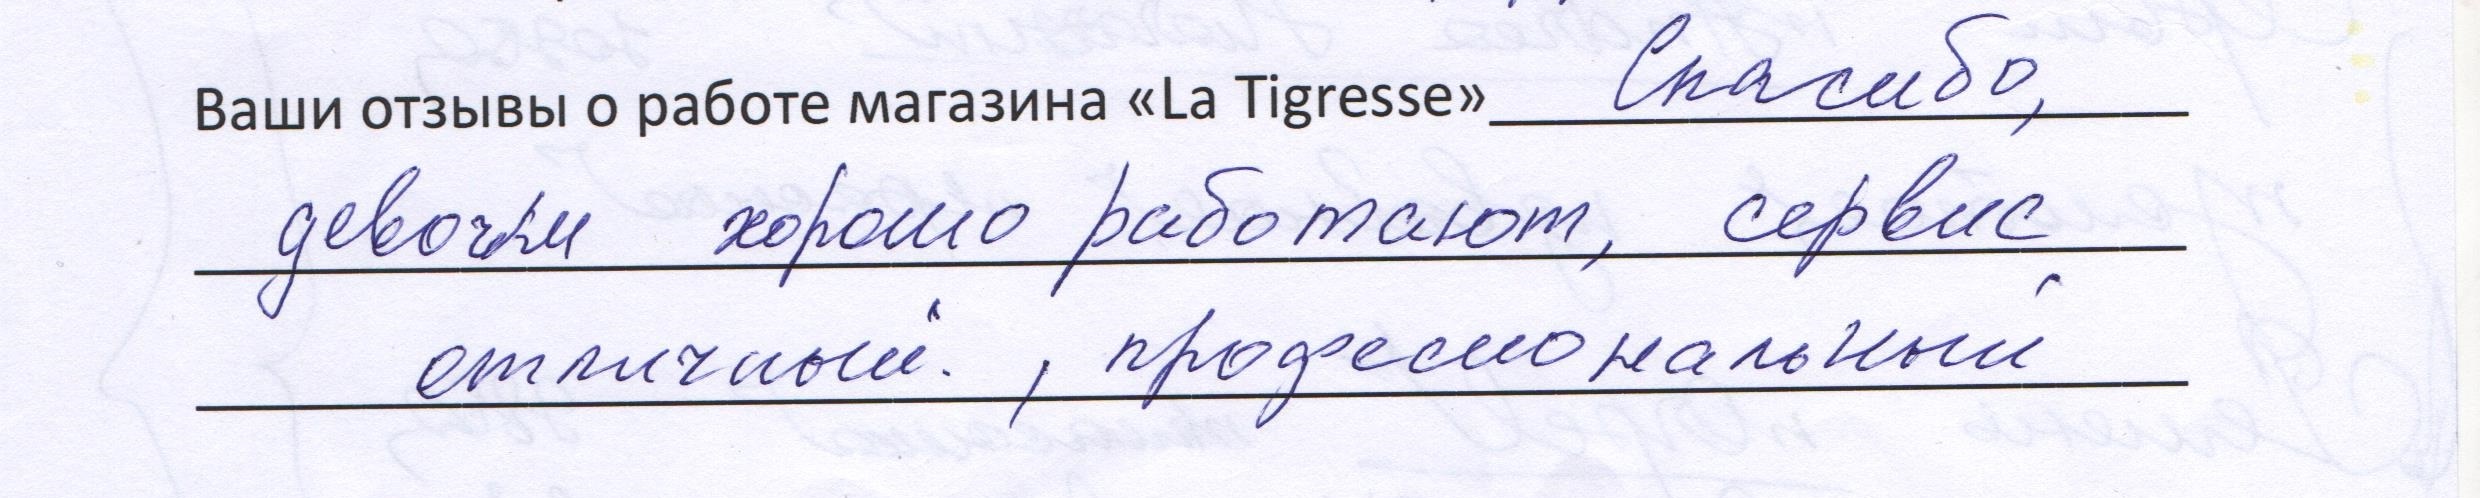 Ваши отзывы о работе магазина «La Tigresse» Спасибо,
девочки хорошо работают, сервис
отличный. , професиональный